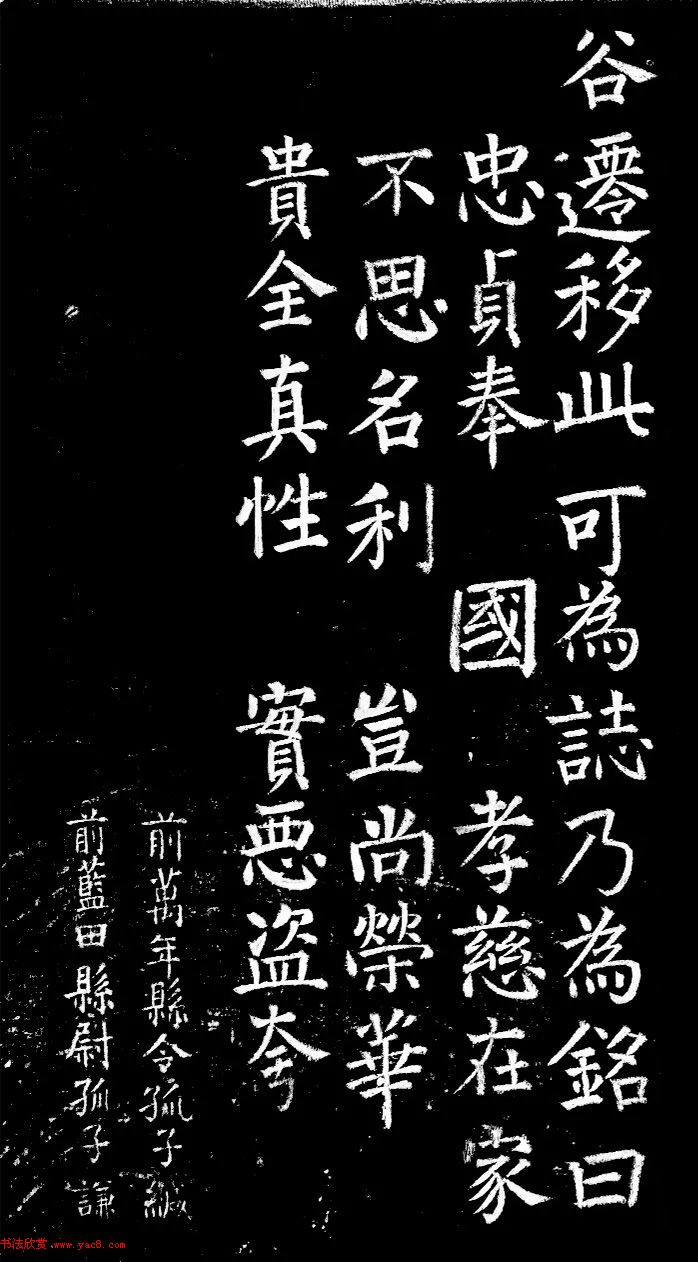 谷遷移此可為誌乃為銘曰
忠貞奉 國 孝慈在家
不思名利 豈尚榮華
貴全真性 實惡盜夸
前萬年縣令孤子緘
前藍田縣尉孤子謙
书法欣赏.www.yac8.com